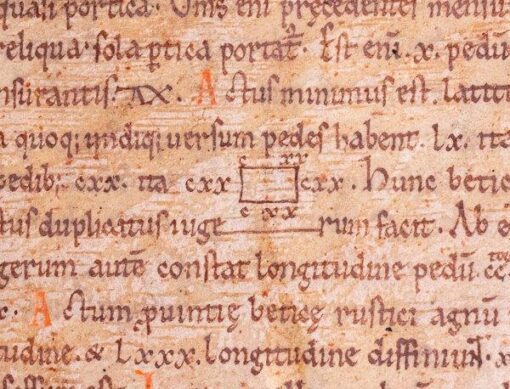 quali portica. Unus eni precedentes mensu
reliqua. sola ptica portat. Est eni. x. pedu
nsurantis. Actus minimus est. latitu
a quoq; undiq; uersum pedes habent. lx. ita
pedib; cxx. ita cxx c xx cxx. Hunc betic
c xx
tus duplicatus iuge rum facit. Ab e
gerum aute constat longitudine pedu. cc
x. Actum puintię beticę rustici agnu
tudine. & lxxx. longitudine diffiniu x